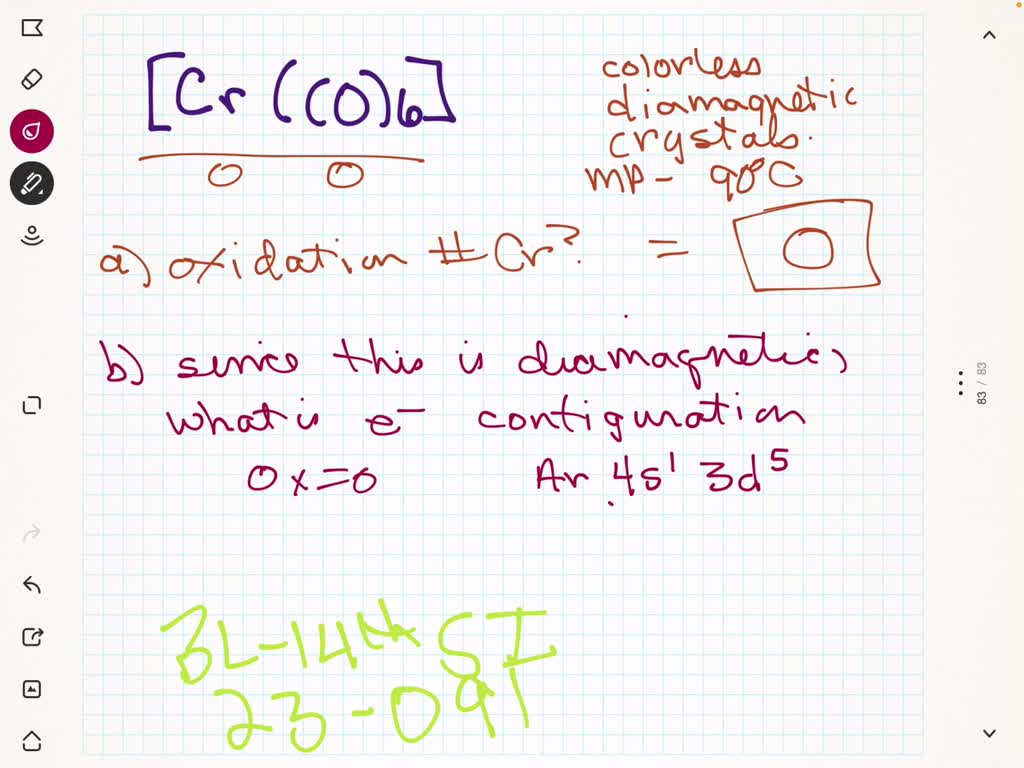 [Cr(CO)6]
colorless
diamagnetic
crystals.
MP - 90°C
0 0
a) oxidation # Cr? = 0
b) since this is diamagnetic,
what is e- configuration
Ox=0 Ar 4s1 3d5
BL-14th SI
23-091
83 / 83